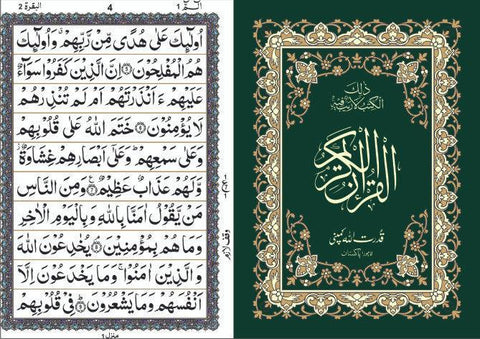 البقرة ٢
4
الٓمّٓ ١
اُولٰٓئِكَ عَلٰى هُدًى مِّنْ رَّبِّهِمْ ۗ وَاُولٰٓئِكَ
هُمُ الْمُفْلِحُوْنَ ۝٥ اِنَّ الَّذِيْنَ كَفَرُوْا سَوَآءٌ
عَلَيْهِمْ ءَاَنْذَرْتَهُمْ اَمْ لَمْ تُنْذِرْهُمْ
لَا يُؤْمِنُوْنَ ۝٦ خَتَمَ اللّٰهُ عَلٰى قُلُوْبِهِمْ
وَعَلٰى سَمْعِهِمْ ؕ وَعَلٰٓى اَبْصَارِهِمْ غِشَاوَةٌ ز
وَّلَهُمْ عَذَابٌ عَظِيْمٌ ۝٧ وَمِنَ النَّاسِ
مَنْ يَّقُوْلُ اٰمَنَّا بِاللّٰهِ وَبِالْيَوْمِ الْاٰخِرِ
وَمَا هُمْ بِمُؤْمِنِيْنَ ۝٨ يُخٰدِعُوْنَ اللّٰهَ
وَالَّذِيْنَ اٰمَنُوْا ۚ وَمَا يَخْدَعُوْنَ اِلَّآ
اَنْفُسَهُمْ وَمَا يَشْعُرُوْنَ ۝٩ فِيْ قُلُوْبِهِمْ
وقف لازم
منزل ١
ذٰلِكَ
الْكِتٰبُ لَا رَيْبَ فِيْهِ
القرآن الكريم
قدرت اللہ کمپنی
لاہور، پاکستان